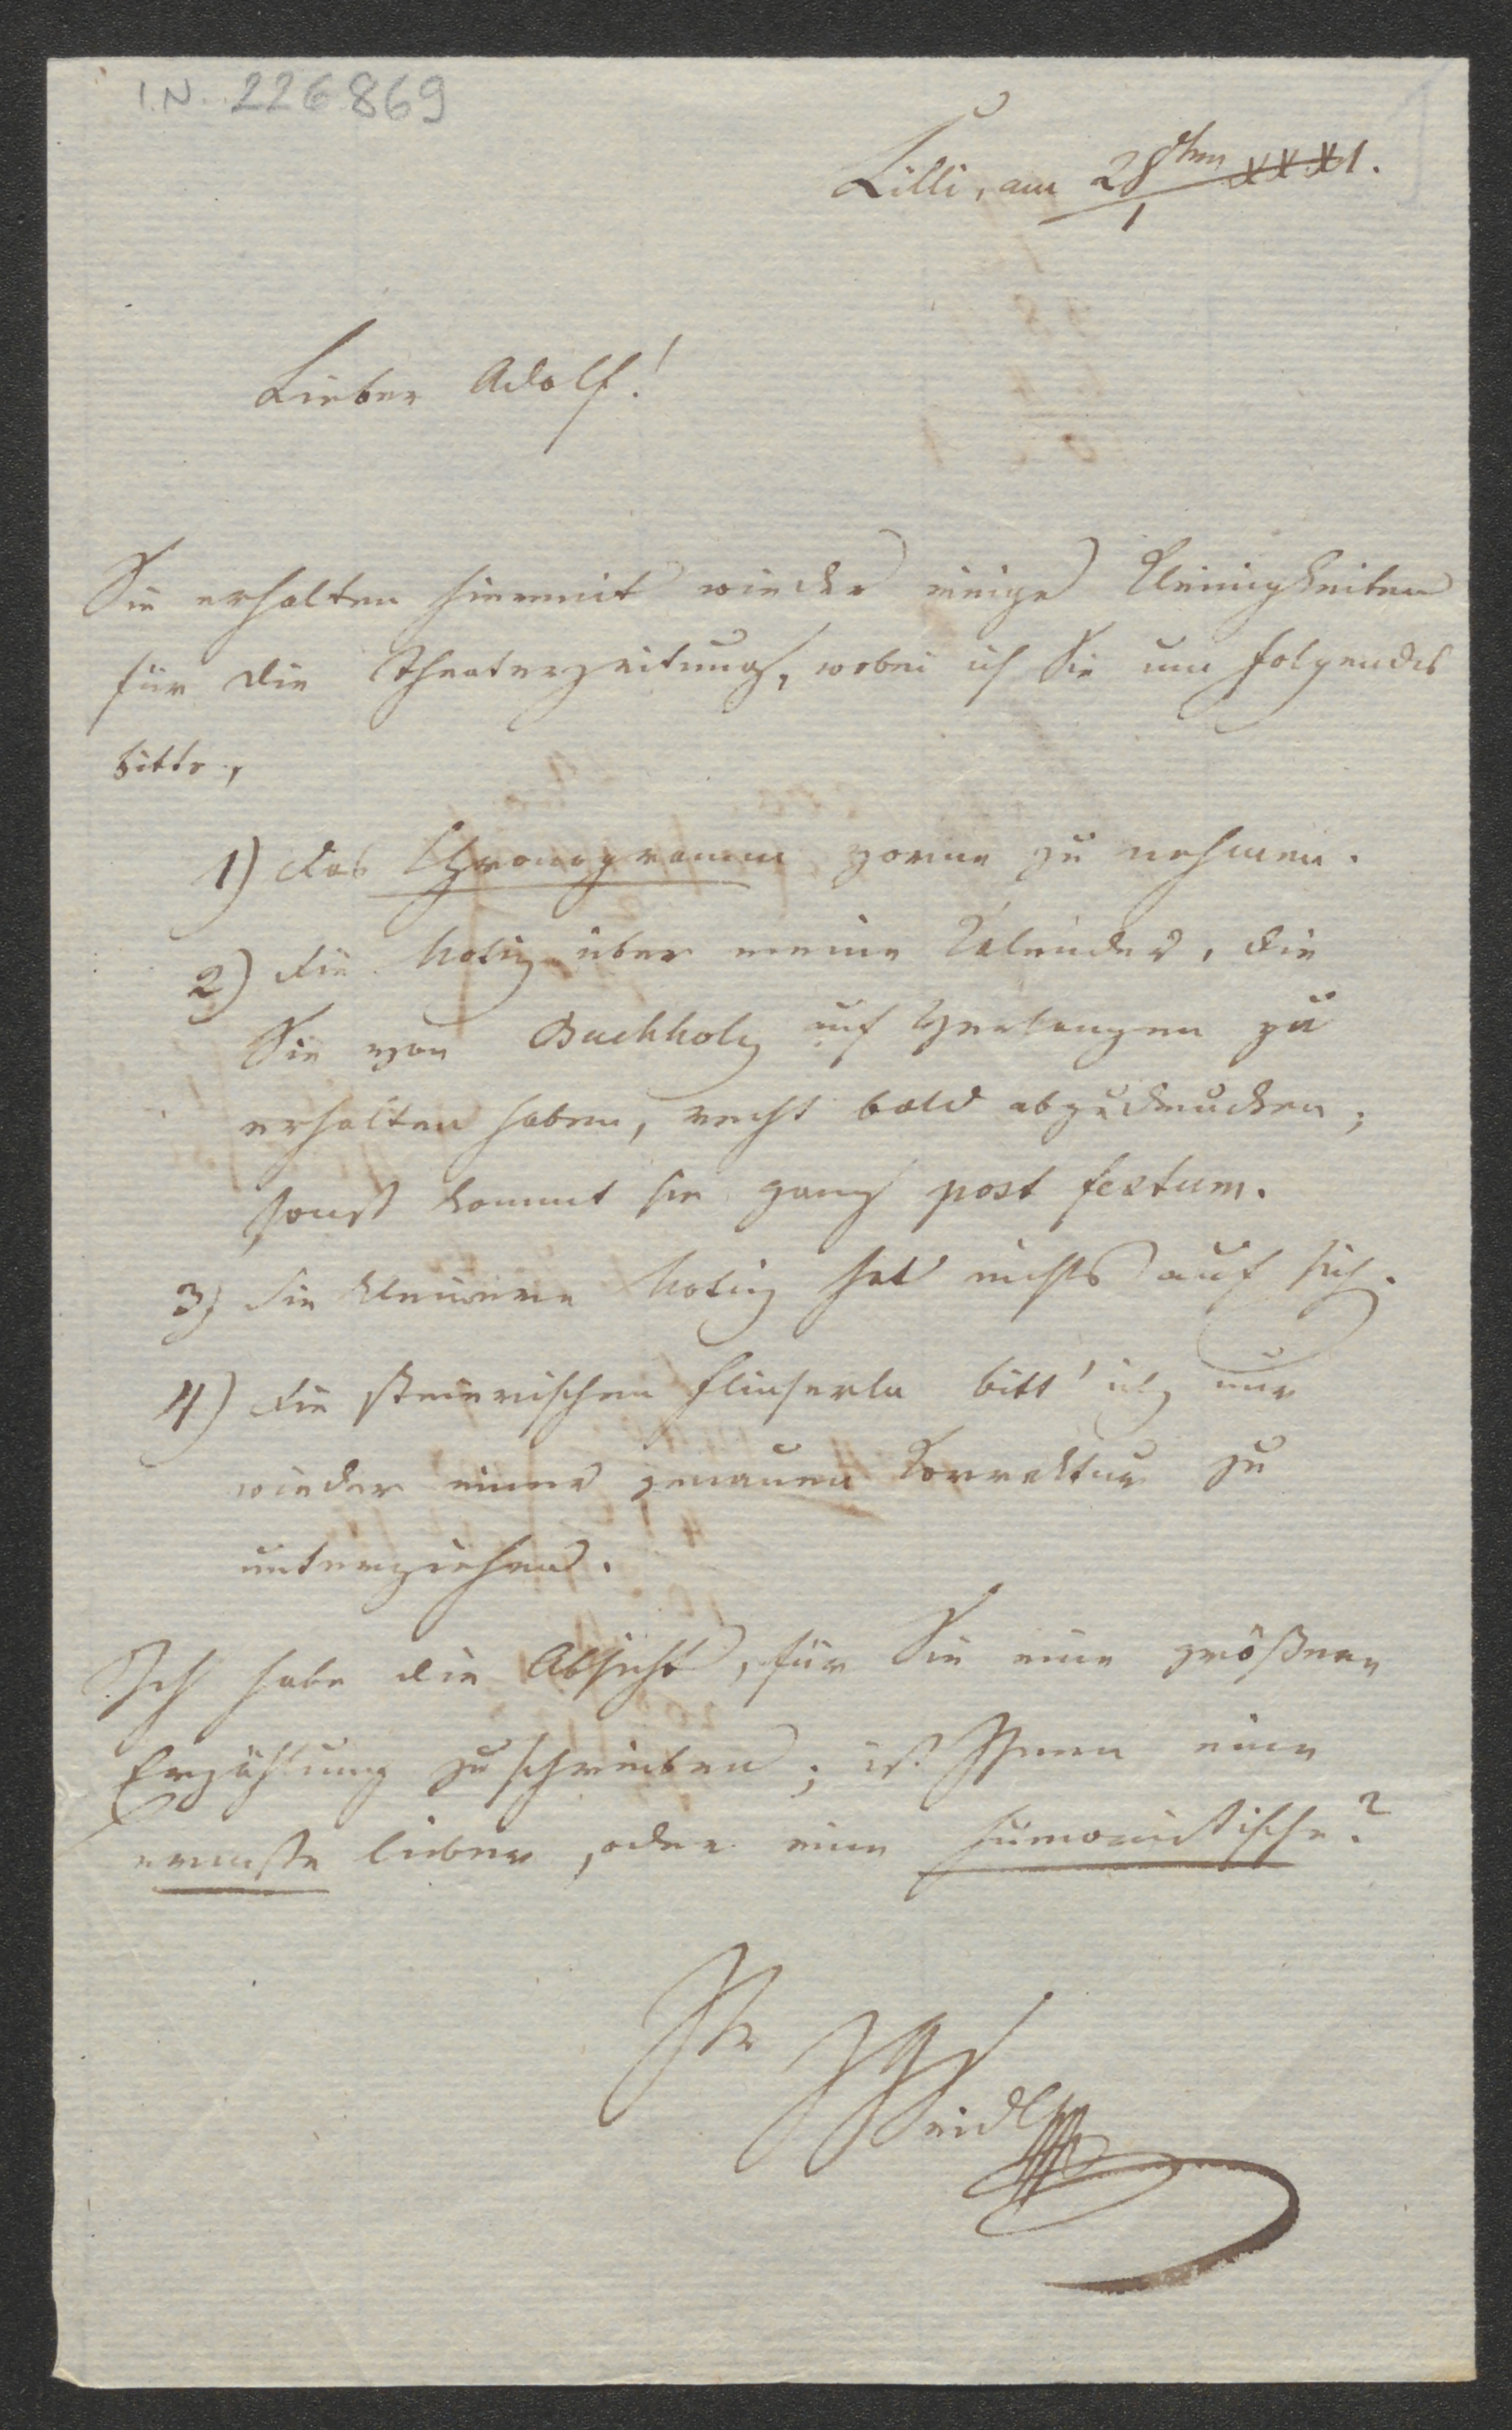 I.N. 226869
Cilli, am 28ten/1 XXXI.
Lieber Adolf!
Sie erhalten hiermit wieder einige Kleinigkeiten
für die Theaterzeitung, wobei ich Sie um folgendes
bitte,
1) das Chronogramm vorne zu nehmen.
2) die Notiz über meine Kalender, die
Sie von Buchholz auf Verlangen zu
erhalten haben, recht bald abzudrucken;
sonst kommt sie ganz post festum.
3) die kleinere Notiz hat nichts auf sich.
4) die steierischen Flinserln bitt' ich nur
wieder einer genauen Korrektur zu
unterziehen.
Ich habe die Absicht, für Sie eine größere
Erzählung zu schreiben; ist Ihnen eine
ernste lieber, oder eine humoristische?
Ihr
JGSeidl